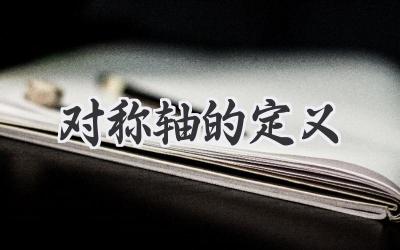 对称轴的定义